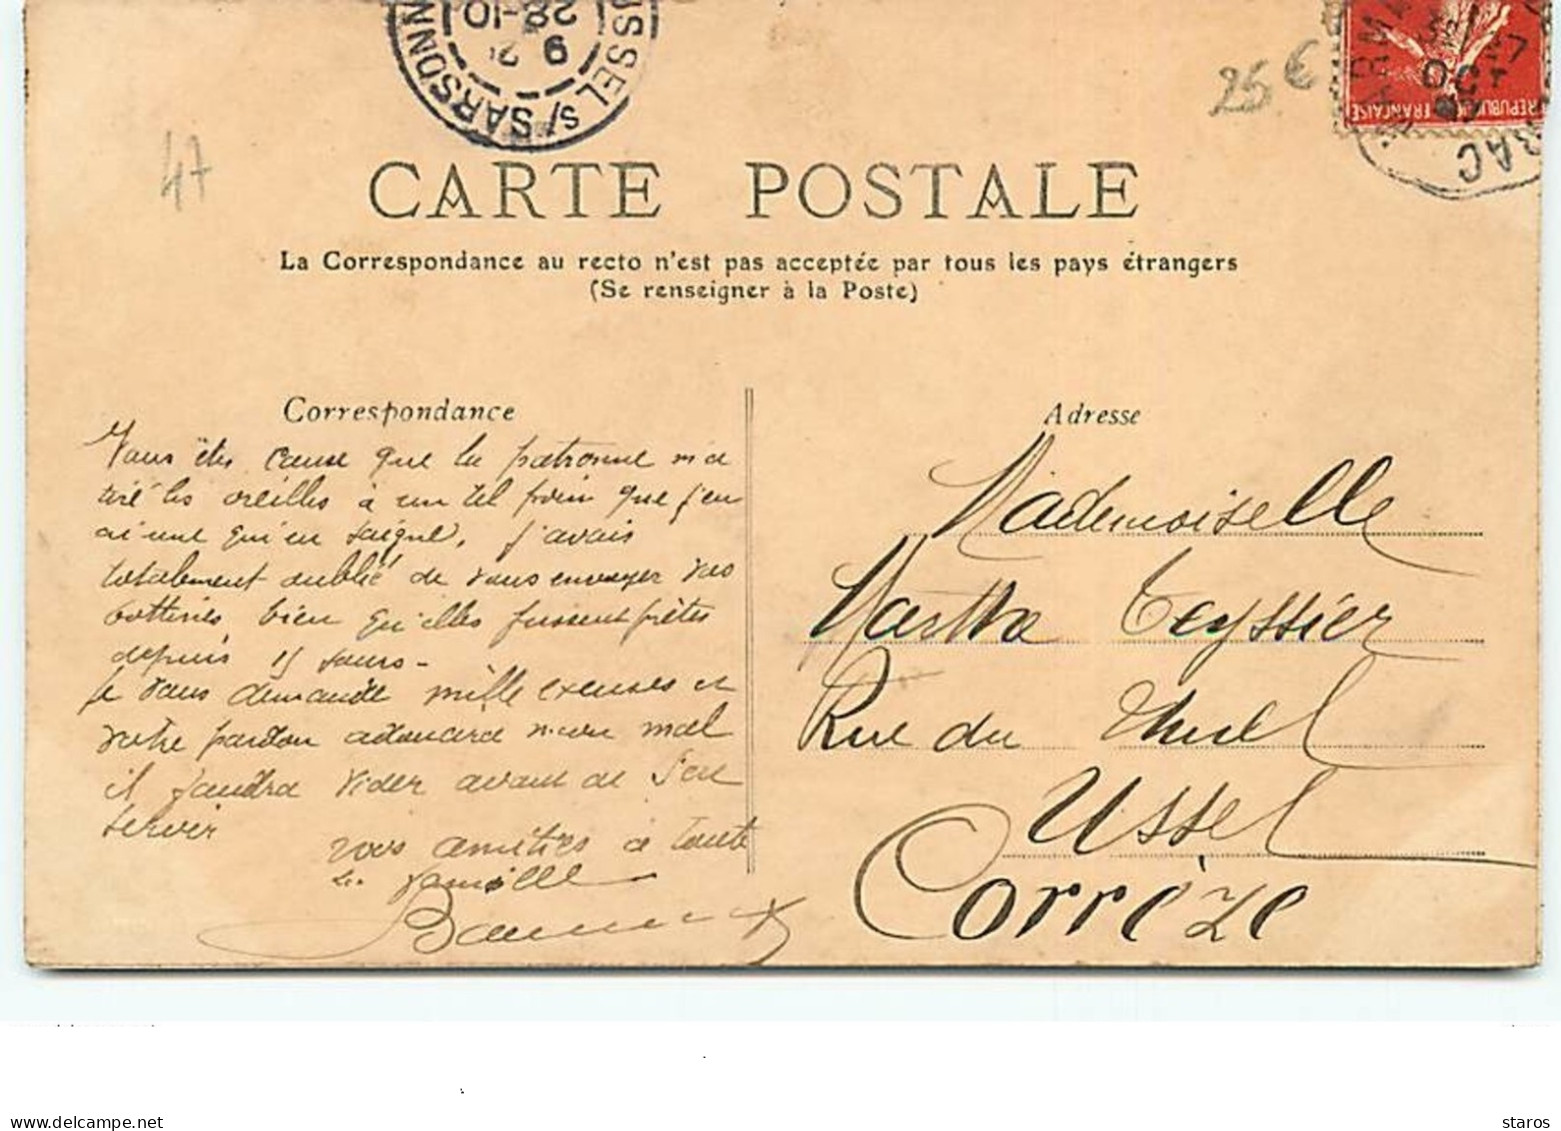 USSEL S/ SARSONN
9
28-10
25 €
RÉPUBLIQUE FRANÇAISE
OCT
BAC
47
CARTE POSTALE
La Correspondance au recto n'est pas acceptée par tous les pays étrangers
(Se renseigner à la Poste)
Correspondance
Vous êtes cause que la patronne m'a
tiré les oreilles à un tel poin que j'en
ai une qui en saigne, j'avais
totalement oublié de vous envoyer vos
bottines bien qu'elles fussent prêtes
depuis 15 jours -
Je vous demande mille excuses et
votre pardon adoucira mon mal
il faudra vider avant de s'en
servir
mes amitiés à toute
la famille
Adresse
Mademoiselle
Martha Teyssier
Rue du Thuel
Ussel
Corrèze
www.delcampe.net
staros